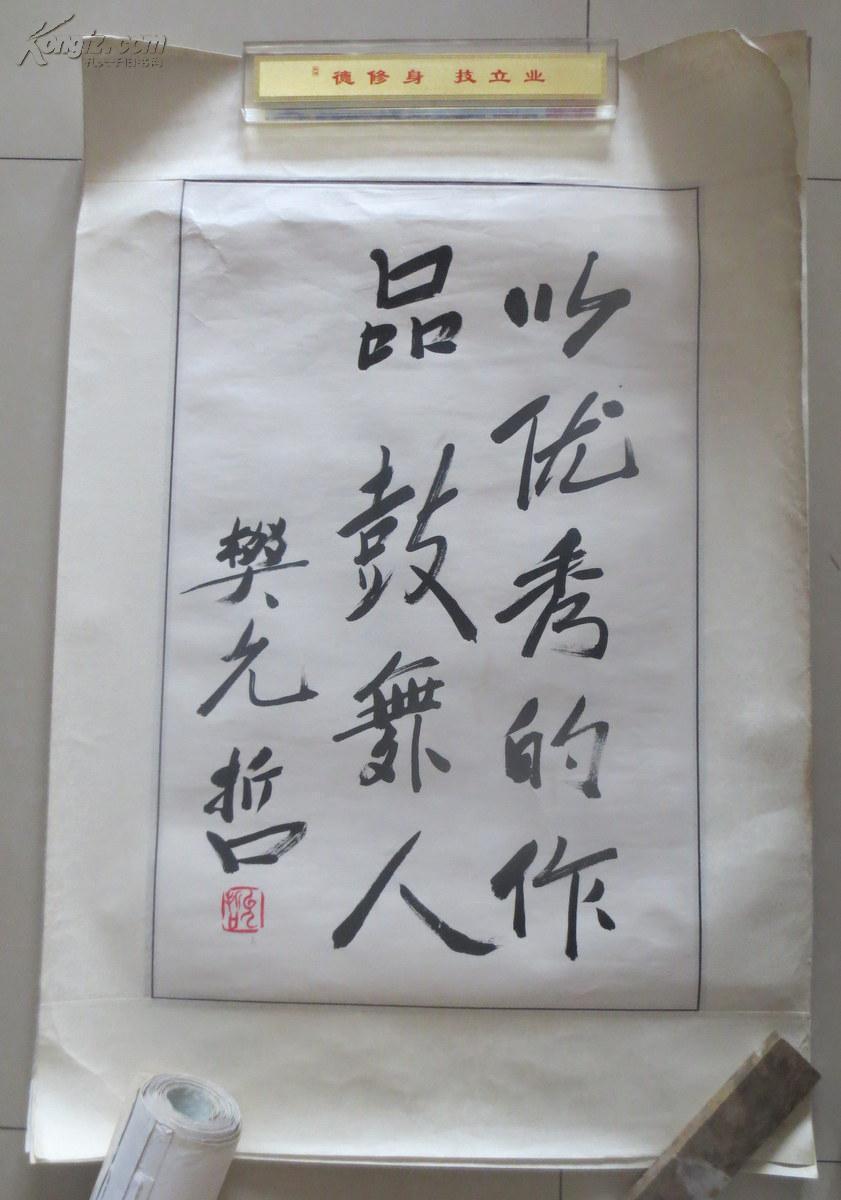 Kongfz.com
孔夫子旧书网
德修身 技立业
以优秀的作
品鼓舞人
樊允哲